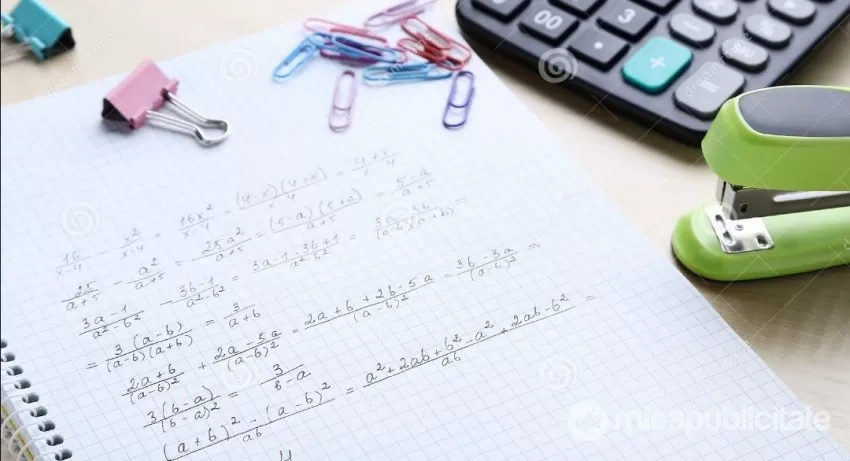 00 3
+
16/x-4 - x²/x-4 = 16x²/x-4 = (4-x)(4+x)/x-4 = 4+x/x-4
25/a+5 - a²/a+5 = 25a²/a+5 = (5-a)(5+a)/a+5 = 5-a/a+5
3a-1/a²-b² - 3b-1/a²-b² = 3a-1-3b+1/a²-b² = 3a-3b/(a-b)(a+b) =
= 3(a-b)/(a-b)(a+b) = 3/a+b
2a+b/(a-b)² + 2a-5a/(a-b)² = 2a+b+2b-5a/(a-b)² = 3b-3a/(a-b)² =
3(b-a)/(b-a)² = 3/b-a
(a+b)²-(a-b)²/ab = a²+2ab+b²-a²+2ab-b²/ab =
4
dreamstime
micapublicitate